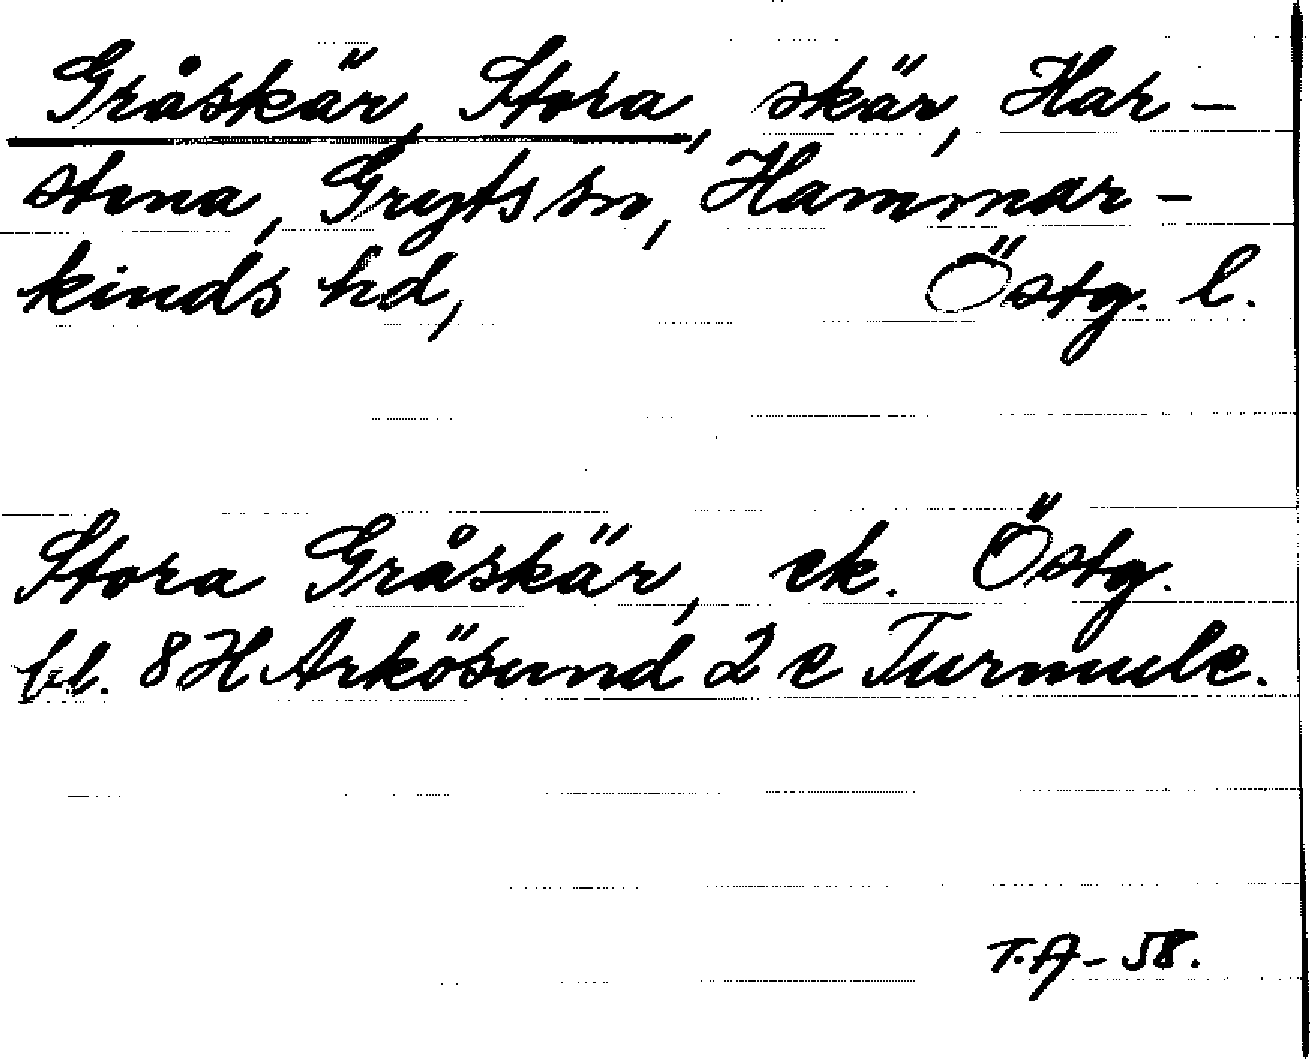 Gråskär, Stora, skär, Har-
stena, Gryts sn, Hammar-
kinds hd, Östg. l.
Stora Gråskär, ek. Östg.
bl. 8H Arkösund 2 c Turmulc.
T.A - 58.